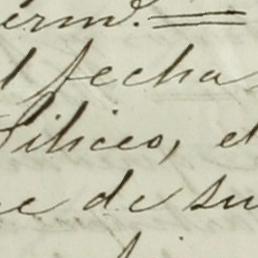 erm.
l fecha
Siliceo, el
e de su